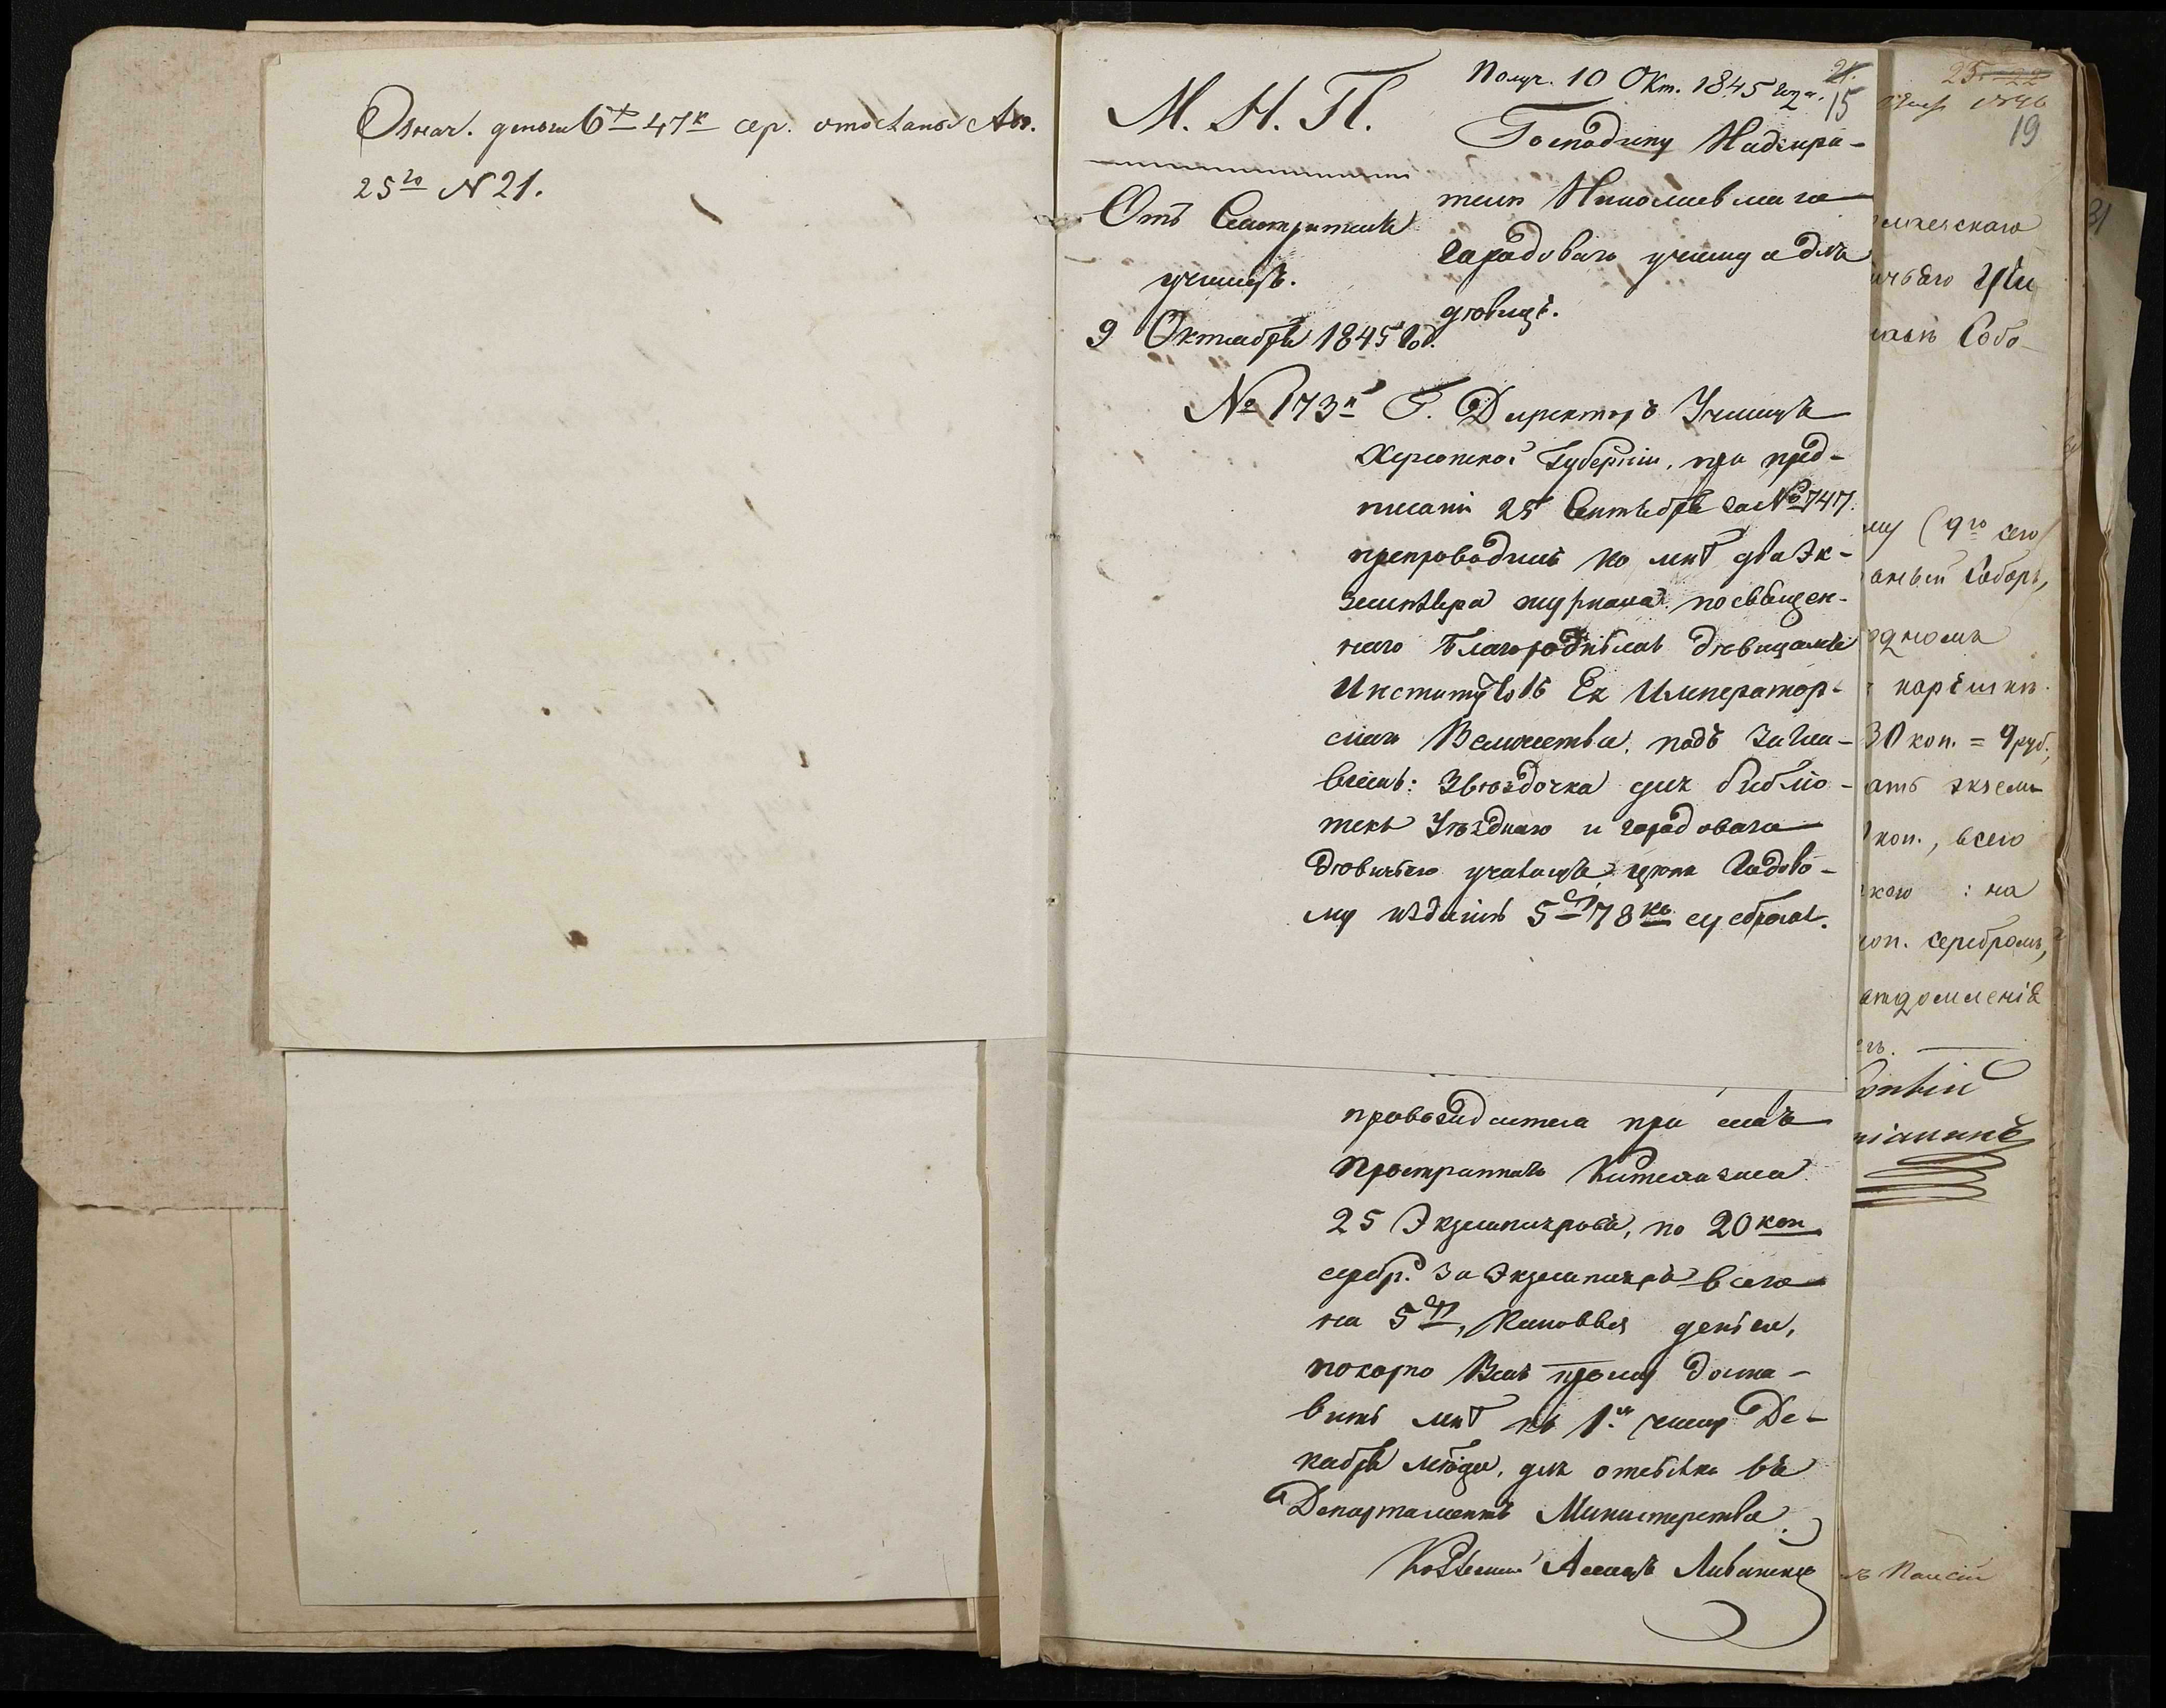 Означ. деньги 6 р 47 к сер. отосланы Окт.
25го N 21.
М. Н. П.
Отъ Смотрителя
училищъ.
9 Октября 1845 год.
№ 173й
Получ. 10 Окт. 1845 года.
21.
15
Господину Надзира-
телю Николаевскаго
Городоваго училища для
дѣвицъ.
Г. Директоръ Училищъ
Херсонской Губерніи, при пред-
писаніи 25 Сентября за № 747.
препроводилъ ко мнѣ два Эк-
земпляра журнала посвящен-
наго Благороднымъ дѣвицамъ
Институтовъ Ея Император-
скаго Величества, подъ Загла-
віемъ: Звѣздочка для библіо-
текъ Уѣзднаго и городоваго
дѣвичьяго училищъ, цѣна Годово-
му изданію 5 ру 78 ко серебромъ.
провозидителя при немъ
пространнаго Катехизиса
25 Экземпляровъ, по 20 коп
серебр. За Экземпляръ всего
на 5 ру, каковыя деньги,
покорно Васъ прошу доста-
вить мнѣ къ 1му числу Де-
кабря мѣсяца, для отсылки въ
Департаментъ Министерства.
25 22
19
ическаго
ичьяго Учи
Собо-
му (9го сего
Соборъ,
одномъ
30 коп. = 9 руб.,
ать экзем
коп., всего
каго : на
коп. серебромъ,
омленія
31
Паисій